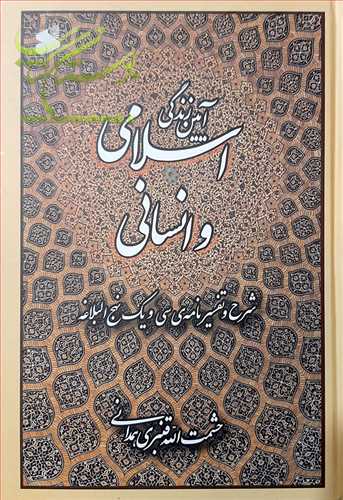 آیین زندگی
اسلامی
و انسانی
شرح و تفسیر نامه‌ی سی و یک نهج البلاغه
حشمت الله قنبری همدانی